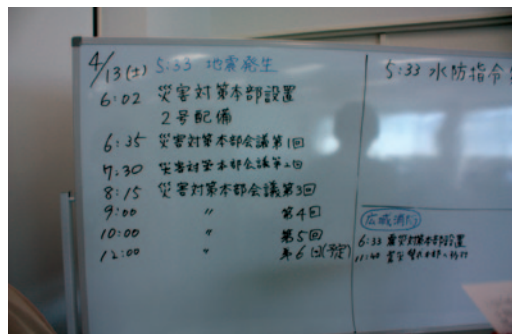 4/13(土) 5:33 地震発生
6:02 災害対策本部設置
2号配備
6:35 災害対策本部会議第1回
7:30 災害対策本部会議第2回
8:15 災害対策本部会議第3回
9:00 〃 第4回
10:00 〃 第5回
12:00 〃 第6回(予定)
5:33 水防指令
広域消防
6:33 震災対策本部設置
11:40